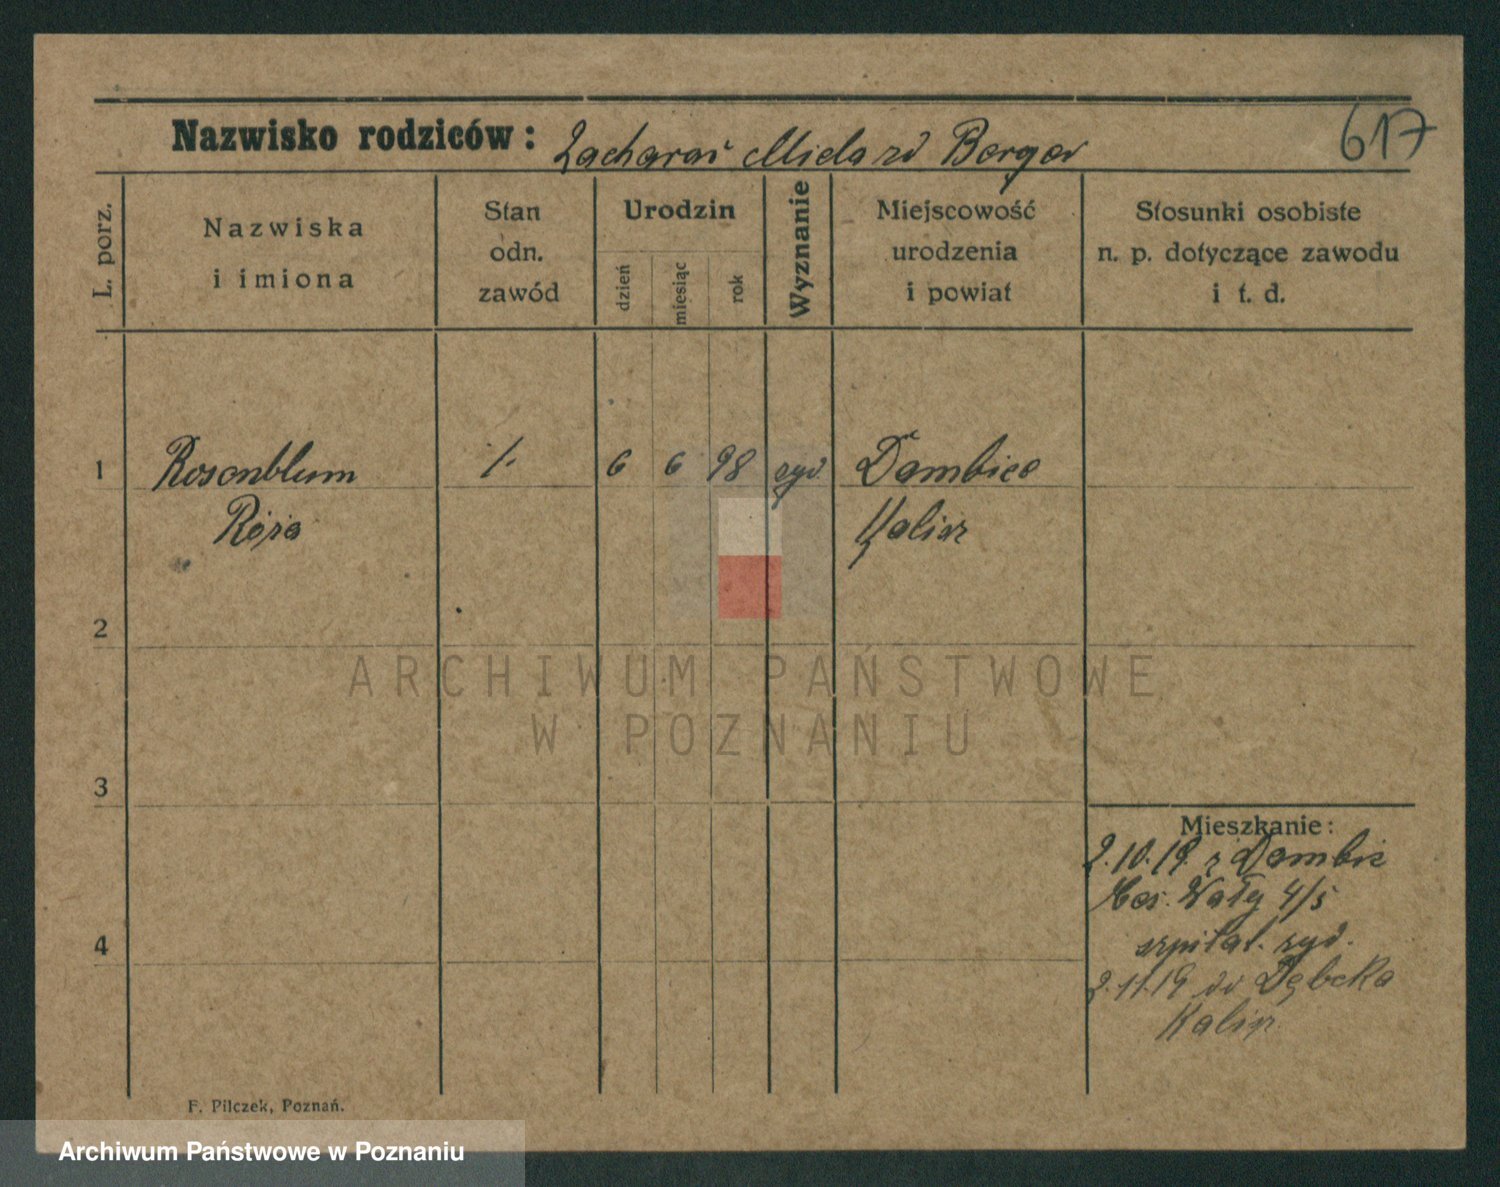 Nazwisko rodziców: Zacharaś Berger
617
L. porz.
Nazwiska
i imiona
Stan
odn.
zawód
Urodzin
dzień
miesiąc
rok
Wyznanie
Miejscowość
urodzenia
i powiat
Stosunki osobiste
n. p. dotyczące zawodu
i t. d.
1 Rosenblum 1. 6 6 98 żyd Dambice
Róża Kalisz
2
ARCHIWUM PAŃSTWOWE
W POZNANIU
3
Mieszkanie:
2.10.19. z Dambic
Wały 4/5
szpital. żyd.
4
2.11.19 do Dębcka
Kalisz
F. Pilczek, Poznań.
Archiwum Państwowe w Poznaniu